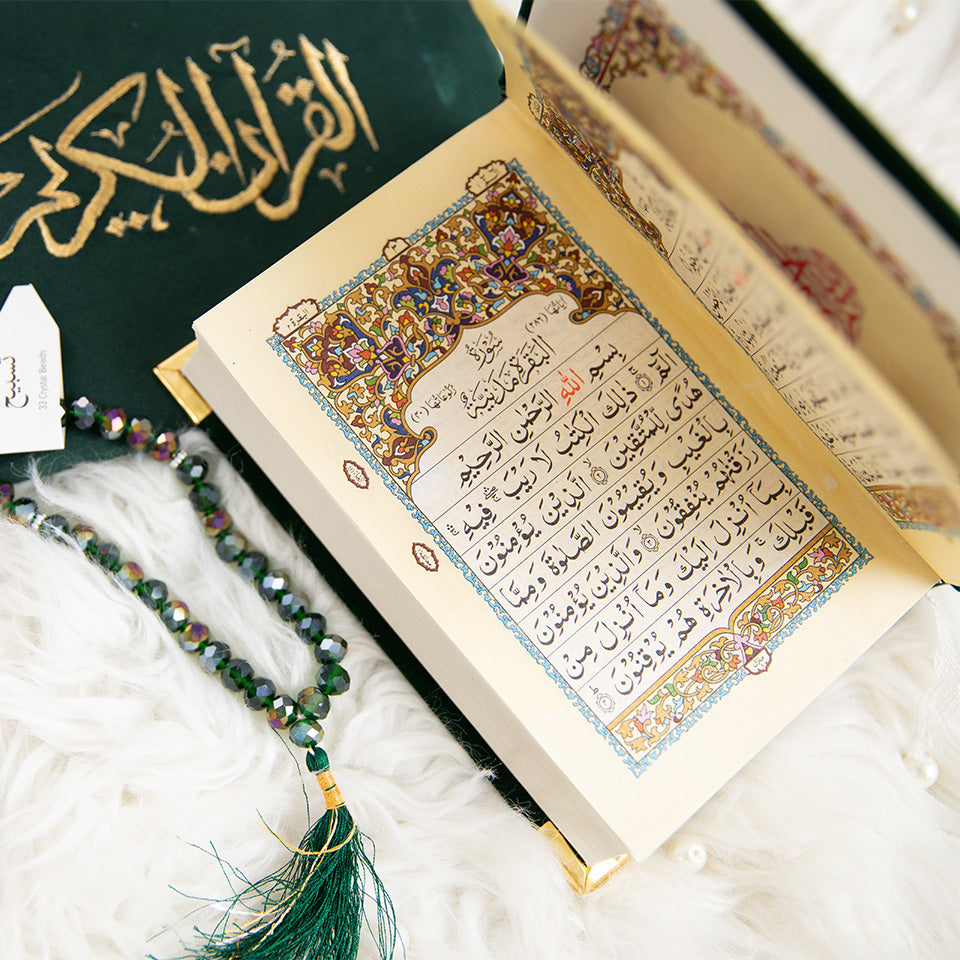 القرآن الكريم
تسبيح
33 Crystal Beads
البقرة
٣
اٰيَاتُهَا (٢٨٦)
سُوْرَةُ
الْبَقَرَةِ مَدَنِيَّةٌ
رُكُوْعَاتُهَا (٤٠)
بِسْمِ اللّٰهِ الرَّحْمٰنِ الرَّحِيْمِ
الٓمّٓ ۚ‏ ۝١ ذٰلِكَ الْكِتٰبُ لَا رَيْبَ ۛ فِيْهِ ۛ
هُدًى لِّلْمُتَّقِيْنَ ۝٢ الَّذِيْنَ يُؤْمِنُوْنَ
بِالْغَيْبِ وَيُقِيْمُوْنَ الصَّلٰوةَ وَمِمَّا
رَزَقْنٰهُمْ يُنْفِقُوْنَ ۝٣ وَالَّذِيْنَ يُؤْمِنُوْنَ
بِمَآ اُنْزِلَ اِلَيْكَ وَمَآ اُنْزِلَ مِنْ
قَبْلِكَ ۚ وَبِالْاٰخِرَةِ هُمْ يُوْقِنُوْنَ ۝٤